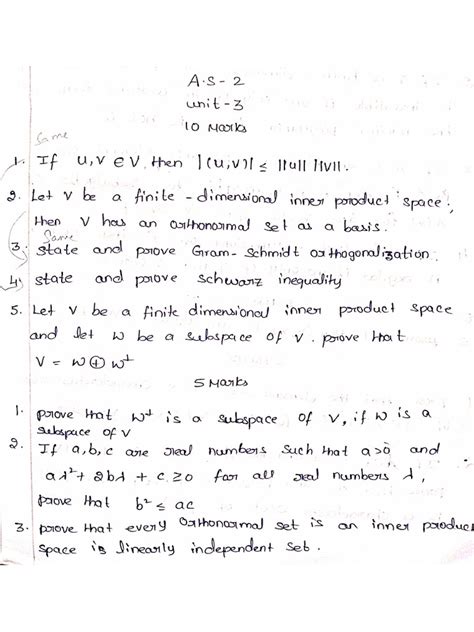 A.S-2
unit-3
10 Marks
Same
1. If u,v ∈ V then |(u,v)| ≤ ||u|| ||v||.
2. Let V be a finite-dimensional inner product space,
then V has an orthonormal set as a basis.
Same
3. state and prove Gram-Schmidt orthogonalization.
4. state and prove schwarz inequality
5. Let V be a finite dimensional inner product space
and let W be a subspace of V. prove that
V = W ⊕ W⊥
5 Marks
1. prove that W⊥ is a subspace of V, if W is a
subspace of V
2. If a,b,c are real numbers such that a>0 and
aλ²+2bλ+c≥0 for all real numbers λ,
prove that b² ≤ ac
3. prove that every orthonormal set is an inner product
space is linearly independent set.